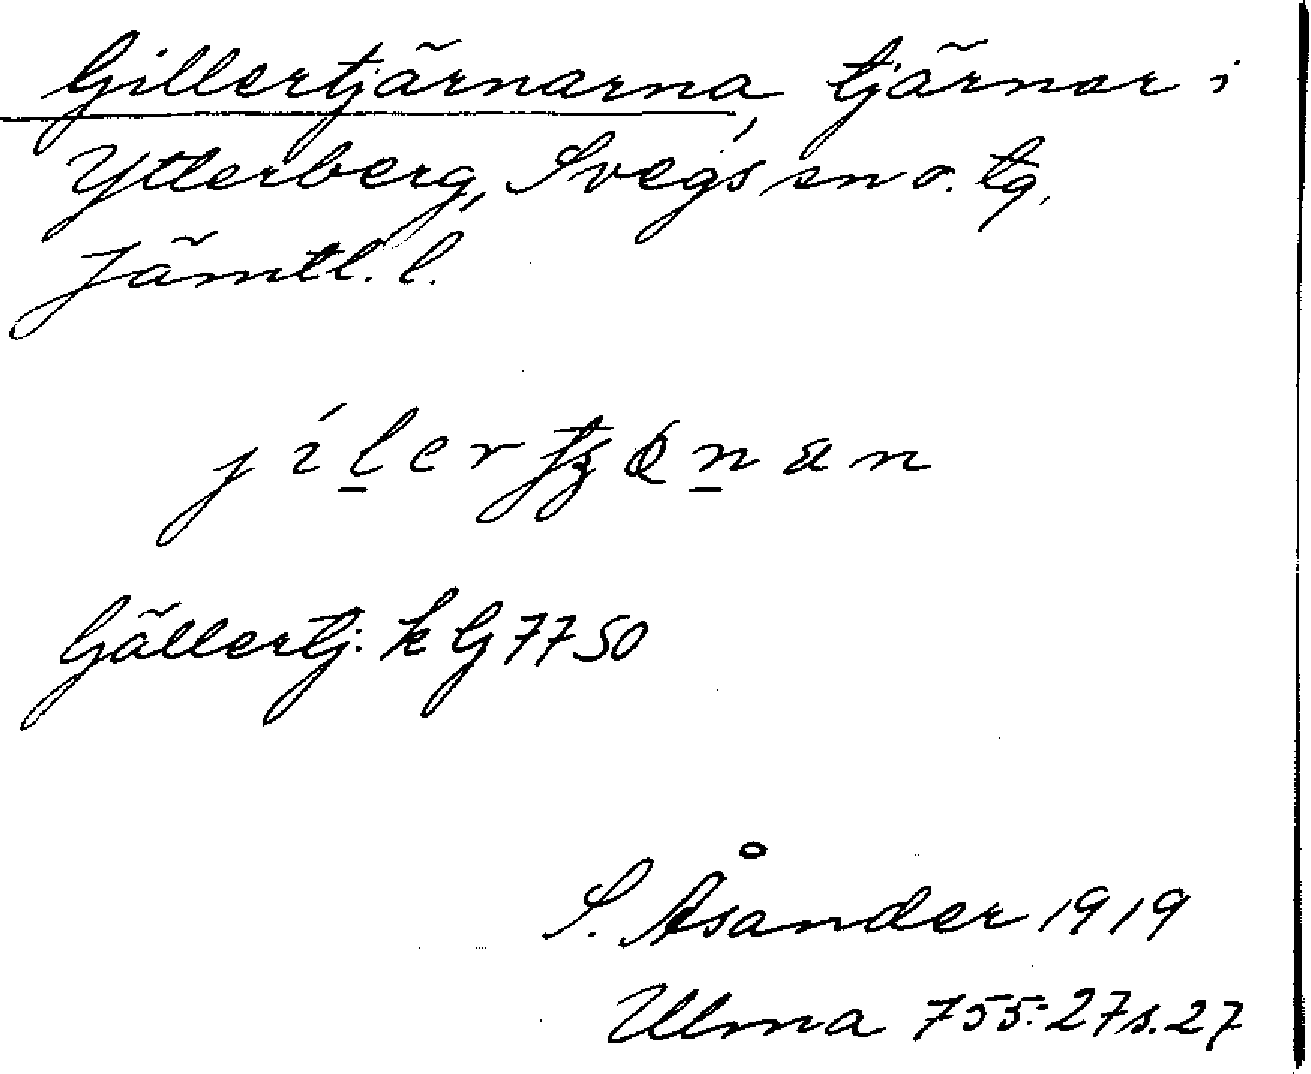 Gillertjärnarna, tjärnar i
Ytterberg, Svegs sn o. tg,
Jämtl. l.
Gällertj: k G 7750
S. Åsander 1919
Ulma 755:27 s. 27